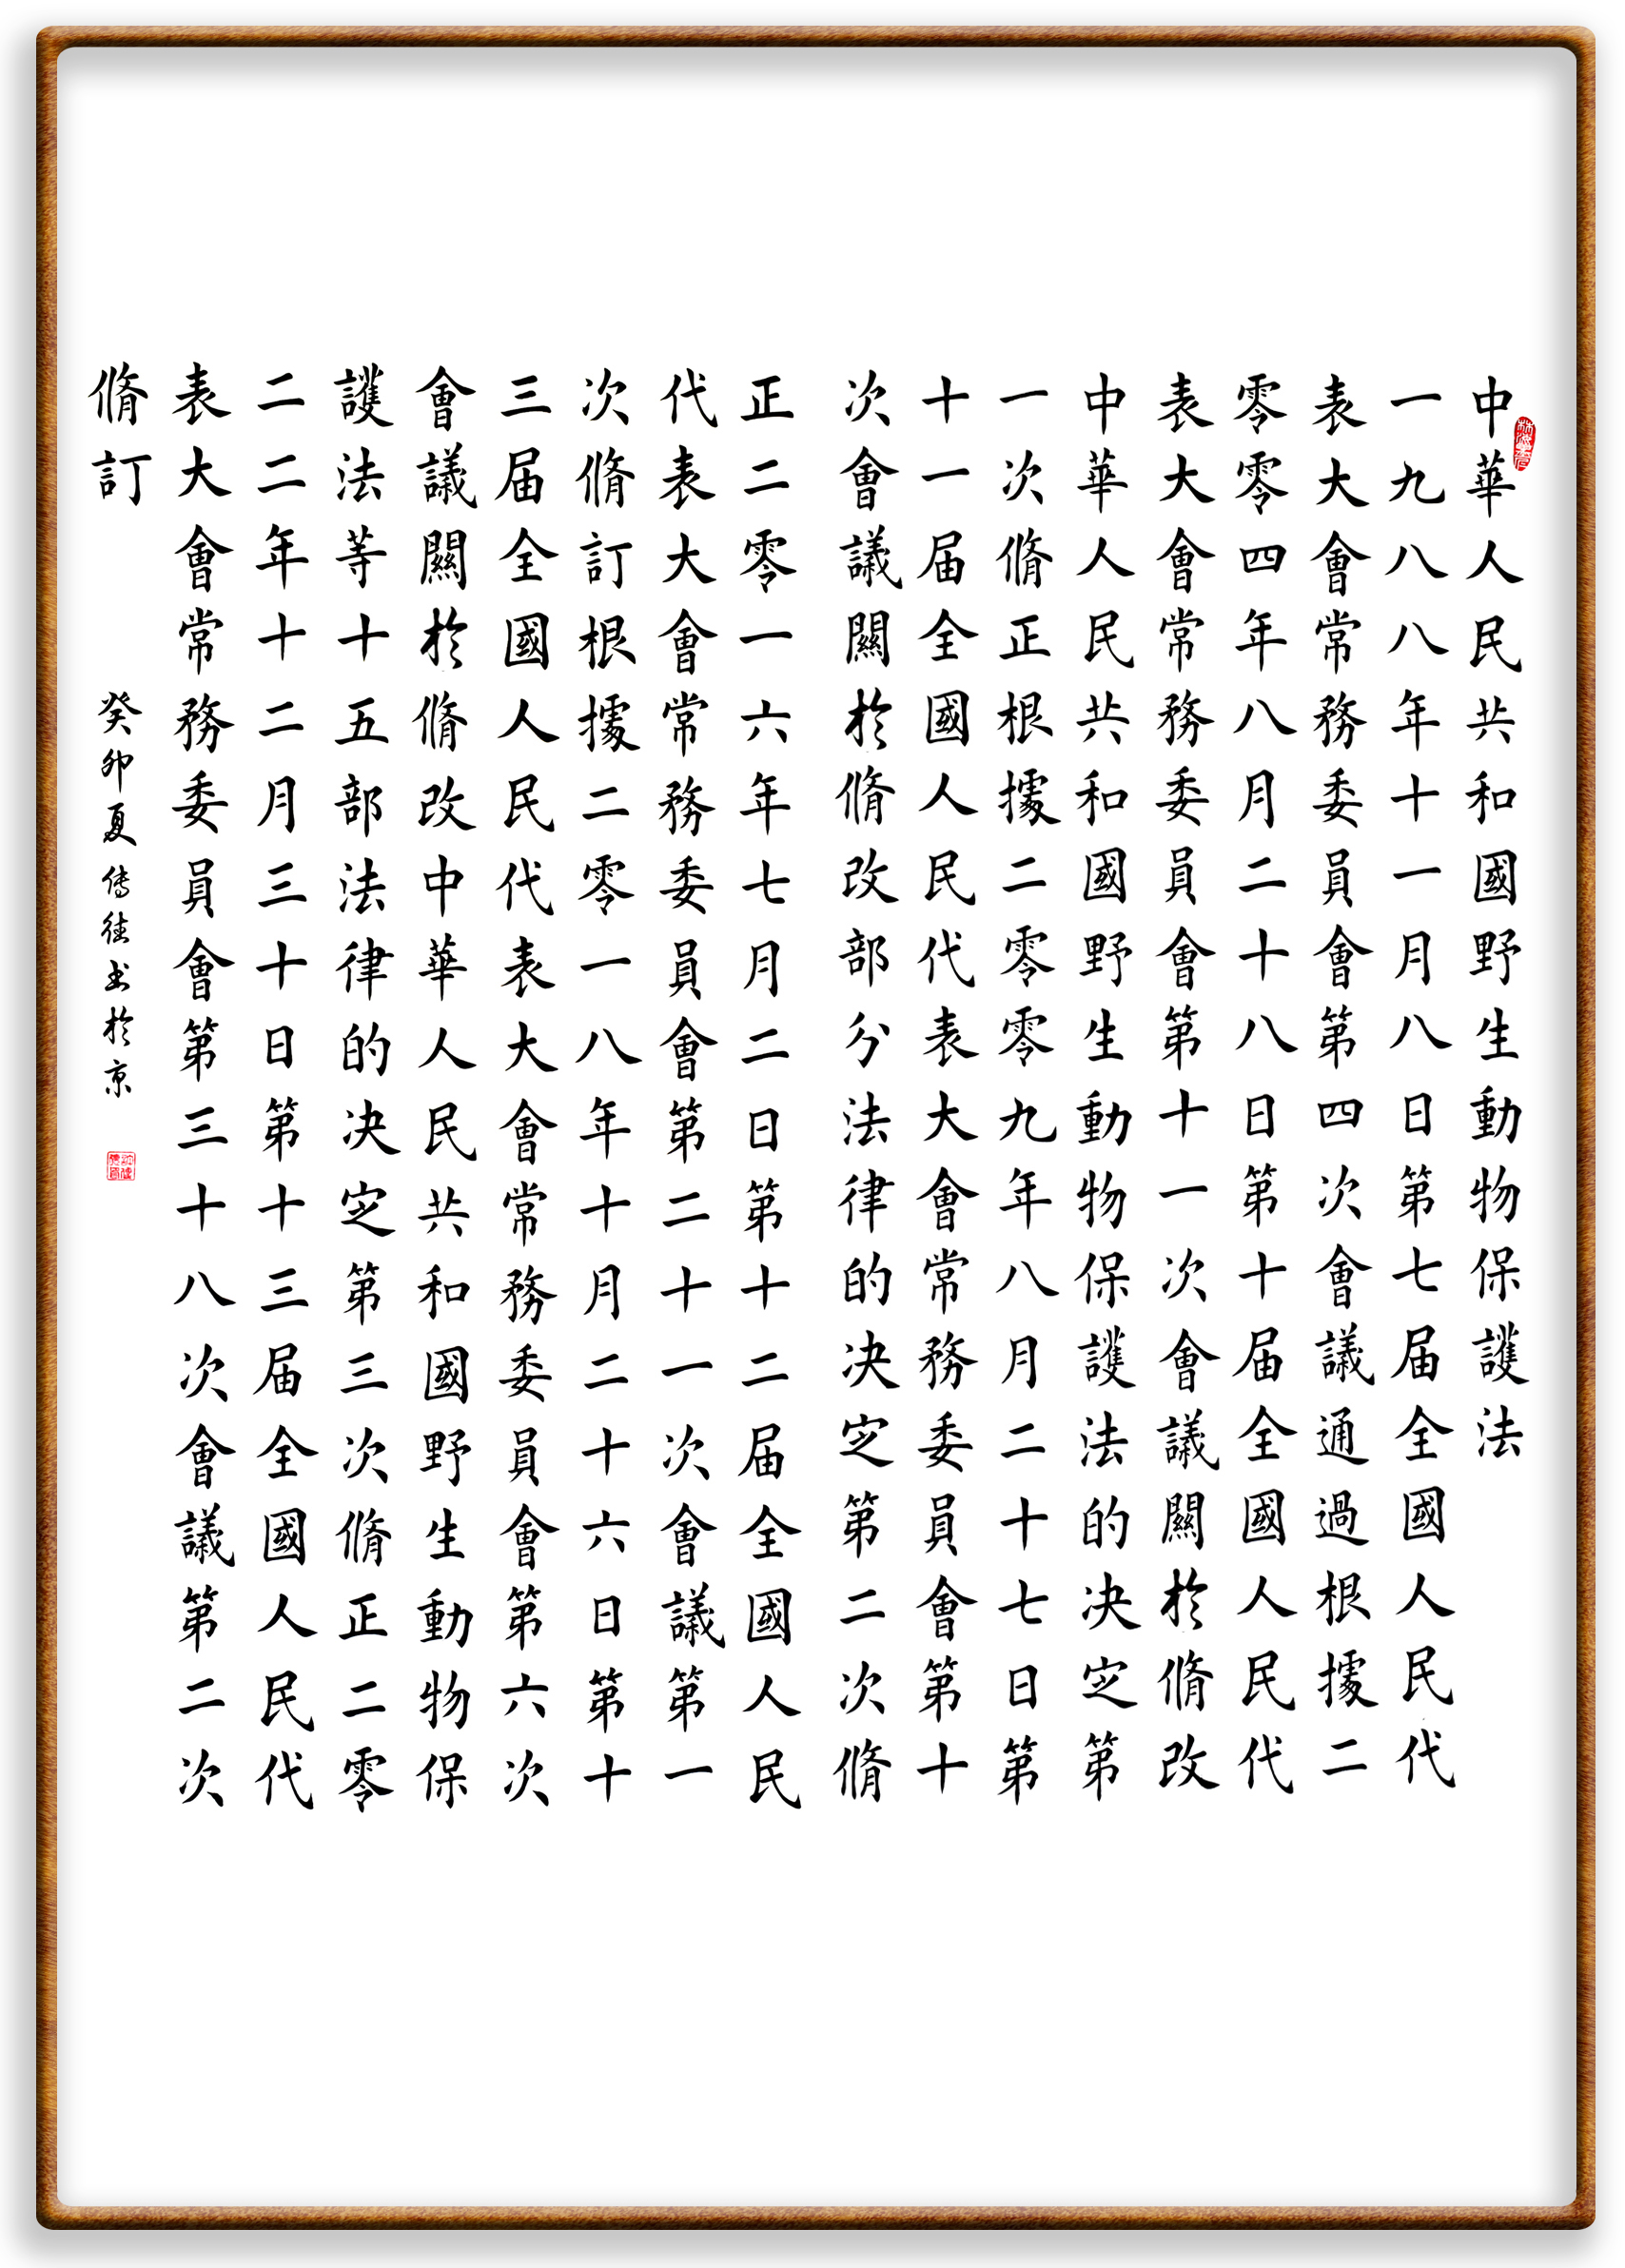 中華人民共和國野生動物保護法
一九八八年十一月八日第七届全國人民代
表大會常務委員會第四次會議通過根據二
零零四年八月二十八日第十届全國人民代
表大會常務委員會第十一次會議關於脩改
中華人民共和國野生動物保護法的决定第
一次脩正根據二零零九年八月二十七日第
十一届全國人民代表大會常務委員會第十
次會議關於脩改部分法律的决定第二次脩
正二零一六年七月二日第十二届全國人民
代表大會常務委員會第二十一次會議第一
次脩訂根據二零一八年十月二十六日第十
三届全國人民代表大會常務委員會第六次
會議關於脩改中華人民共和國野生動物保
護法等十五部法律的决定第三次脩正二零
二二年十二月三十日第十三届全國人民代
表大會常務委員會第三十八次會議第二次
脩訂
癸卯夏傳书於京